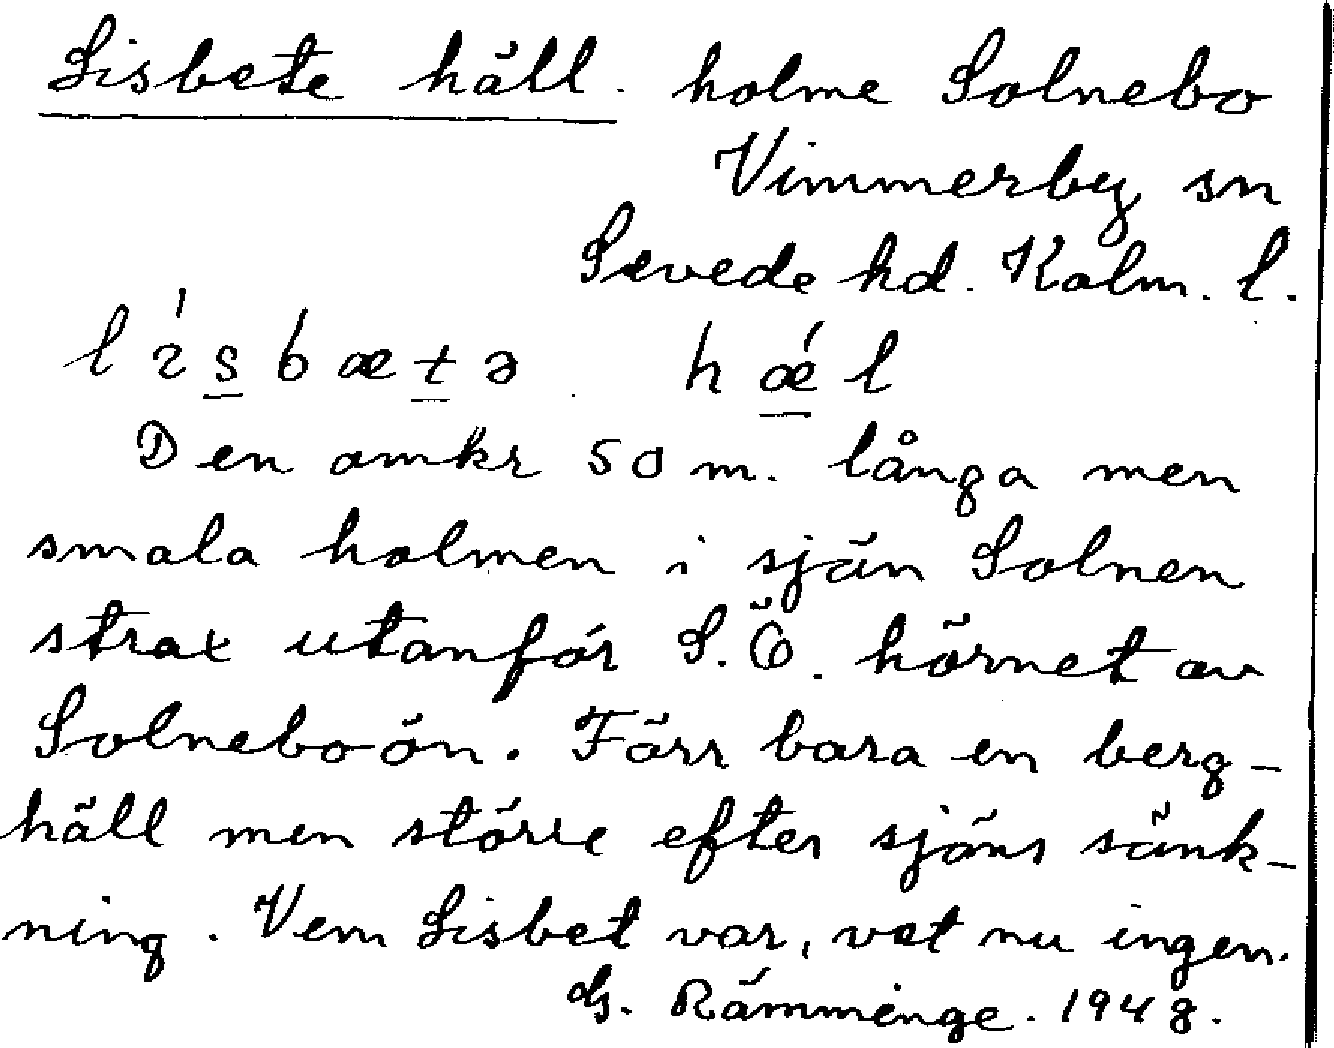 Lisbete häll. holme Solnebo
Vimmerby sn
Sevede hd. Kalm. l.
lísbætə hǽl
Den omkr 50 m. långa men
smala holmen i sjön Solnen
strax utanför S.Ö. hörnet av
Solneboön. Förr bara en berg-
häll men större efter sjöns sänk-
ning. Vem Lisbet var, vet nu ingen.
G. Rämminge. 1948.